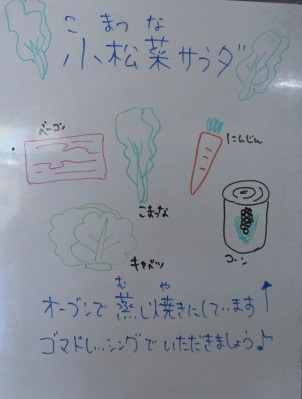 こまつな
小松菜サラダ
ベーコン
にんじん
こまつな
コーン
キャベツ
むや
オーブンで蒸し焼きにしています↑
ゴマドレッシングでいただきましょう♪